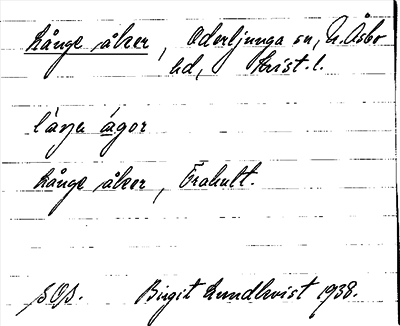 Långe åker, Oderljunga sn, N. Åsbo
hd, Krist. l.
låŋa ågor
Långe åker, Trahult.
SOS. Birgit Lundkvist 1938.